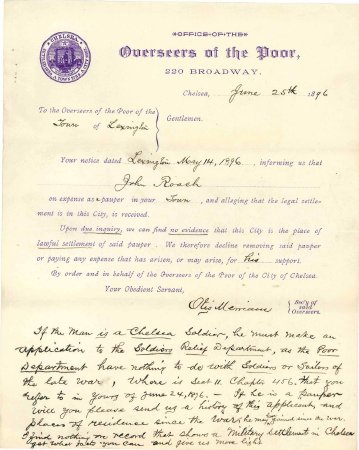 OFFICE OF THE
Overseers of the Poor,
220 BROADWAY.
Chelsea, June 25th 1896
To the Overseers of the Poor of the
Town of Lexington
Gentlemen.
Your notice dated Lexington May 14, 1896, informing us that
John Roach
on expense as pauper in your Town, and alleging that the legal settle-
ment is in this City, is received.
Upon due inquiry, we can find no evidence that this City is the place of
lawful settlement of said pauper. We therefore decline removing said pauper
or paying any expense that has arisen, or may arise, for his support.
By order and in behalf of the Overseers of the Poor of the City of Chelsea.
Your Obedient Servant,
Otis Merriam
Sec'y of
said
Overseers.
If the Man is a Chelsea Soldier, he must make an
application to the Soldiers Relief Department, as the Poor
Department have nothing to do with Soldiers or Sailors of
the late war, Where is Sect 11. Chapter 456, that you
refer to in yours of June 24, 1896. - If he is a pauper
will you please send us a history of this applicant, and
places of residence since the War, he may gained since the war.
I find nothing on record that shows a Military settlement in Chelsea
get what facts you can and give us more light